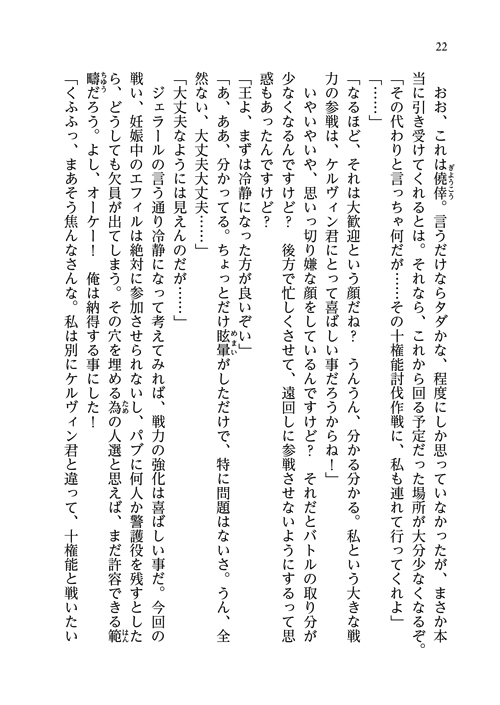 22
おお、これは僥倖。言うだけならタダかな、程度にしか思っていなかったが、まさか本
当に引き受けてくれるとは。それなら、これから回る予定だった場所が大分少なくなるぞ。
「その代わりと言っちゃ何だが……その十権能討伐作戦に、私も連れて行ってくれよ」
「……」
「なるほど、それは大歓迎という顔だね？　うんうん、分かる分かる。私という大きな戦
力の参戦は、ケルヴィン君にとって喜ばしい事だろうからね！」
いやいやいや、思いっ切り嫌な顔をしているんですけど？　それだとバトルの取り分が
少なくなるんですけど？　後方で忙しくさせて、遠回しに参戦させないようにするって思
惑もあったんですけど？
「王よ、まずは冷静になった方が良いぞい」
「あ、ああ、分かってる。ちょっとだけ眩暈がしただけで、特に問題はないさ。うん、全
然ない、大丈夫大丈夫……」
「大丈夫なようには見えんのだが……」
ジェラールの言う通り冷静になって考えてみれば、戦力の強化は喜ばしい事だ。今回の
戦い、妊娠中のエフィルは絶対に参加させられないし、パブに何人か警護役を残すとした
ら、どうしても欠員が出てしまう。その穴を埋める為の人選と思えば、まだ許容できる範
疇だろう。よし、オーケー！　俺は納得する事にした！
「くふふっ、まあそう焦んなさんな。私は別にケルヴィン君と違って、十権能と戦いたい